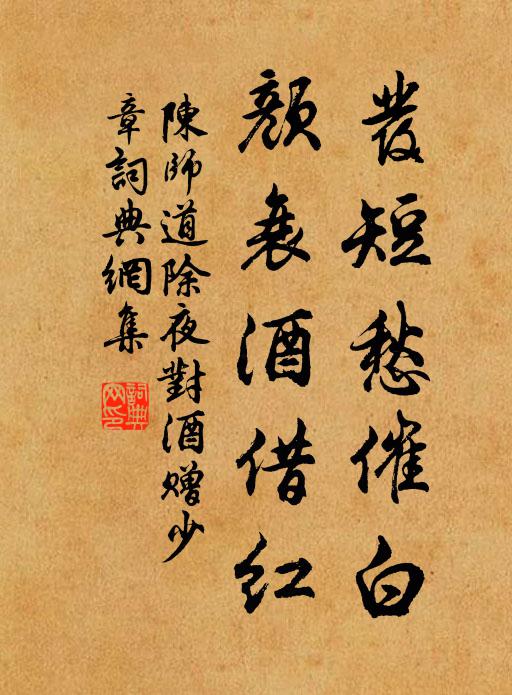 發短愁催白
顏衰酒借紅
陳師道除夜對酒贈少
章詞典網集
詞典
网印